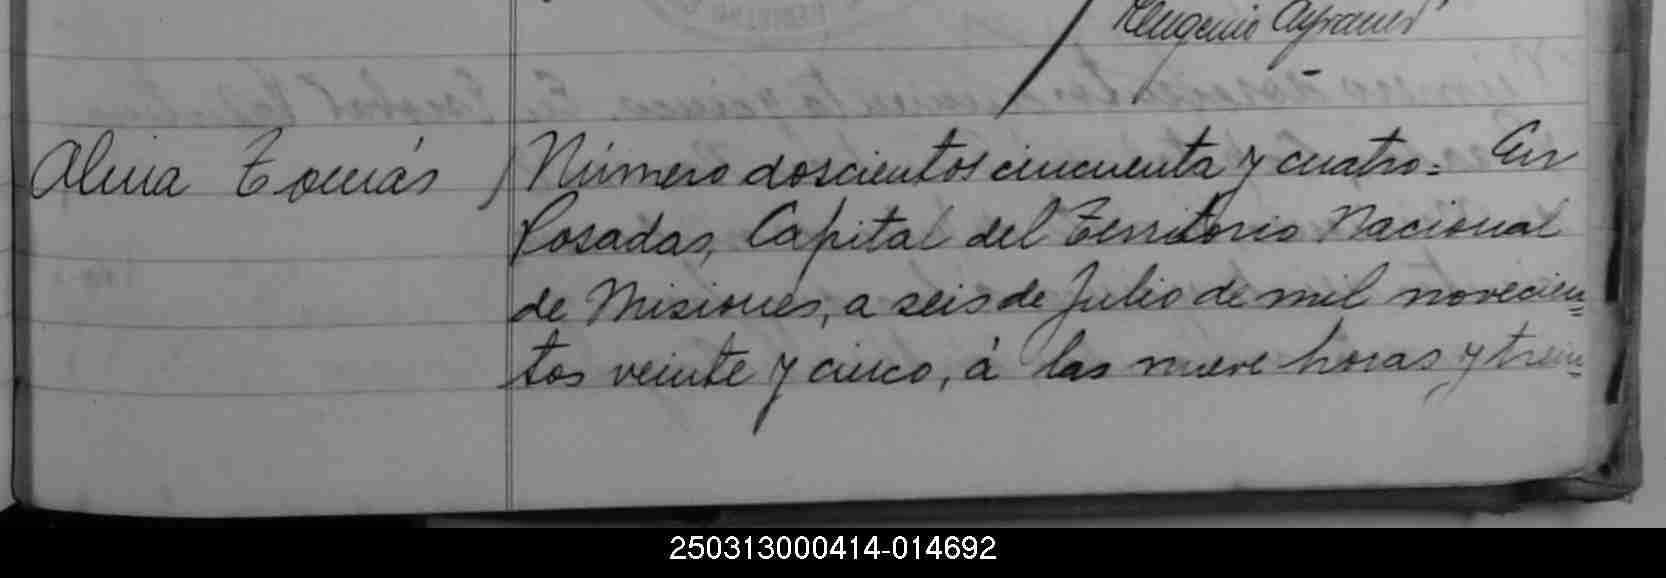 Eugenio
Alvia Tomás
Número doscientos cincuenta y cuatro = En
Posadas, Capital del Territorio Nacional
de Misiones, a seis de Julio de mil novecien=
tos veinte y cinco, á las nueve horas y trein=
250313000414-014692